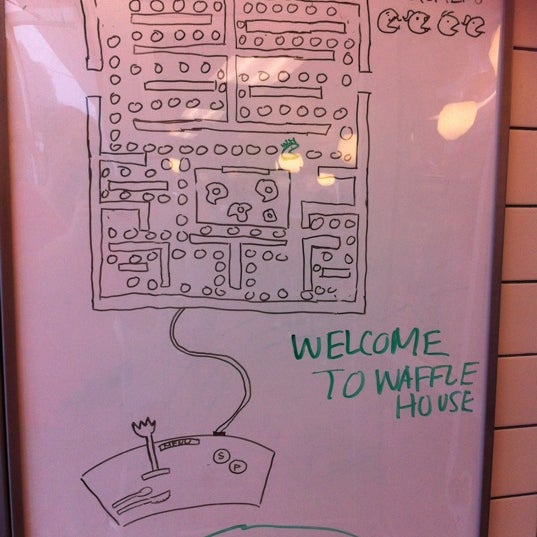 WELCOME
TO WAFFLE
HOUSE
MENU
S P